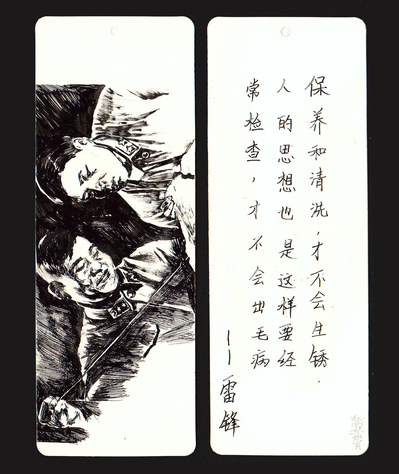 保养和清洗，才不会生锈.
人的思想也是这样要经
常检查，才不会出毛病
——雷锋